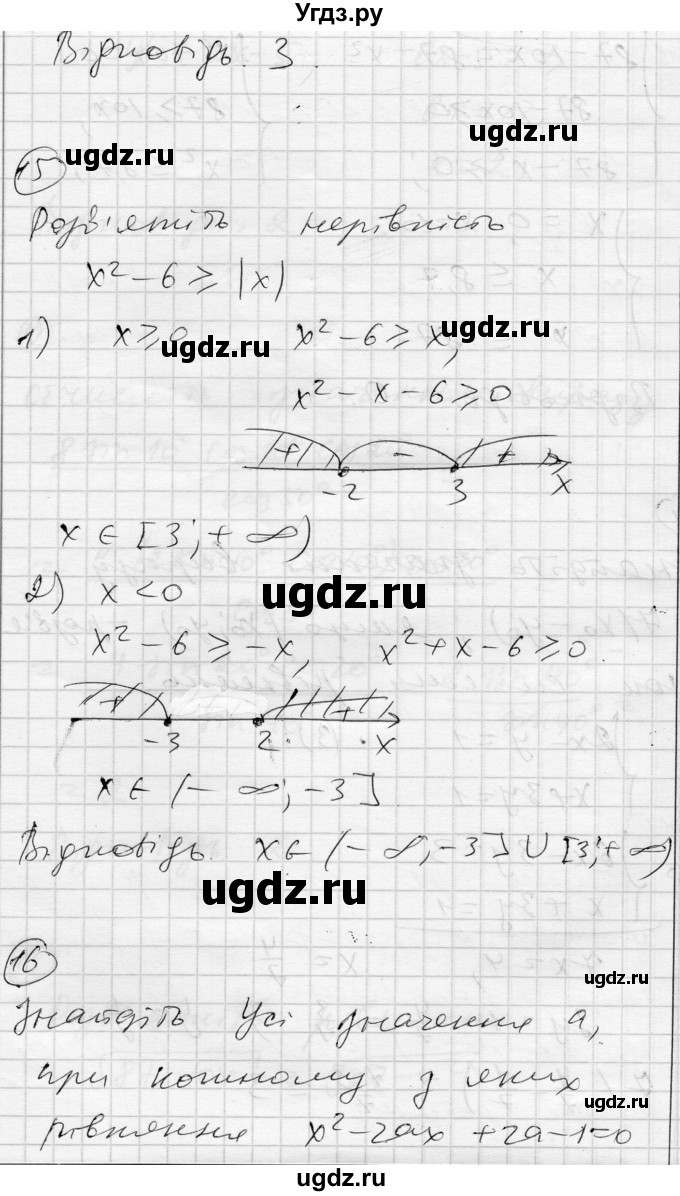 Угдз.ру
Відповідь. 3.
ugdz.ru
ugdz.ru
15
Розв'яжіть нерівність
x² - 6 ≥ |x|
1) x ≥ 0 x² - 6 ≥ x,
ugdz.ru
x² - x - 6 ≥ 0
+ - +
-2 3 x
x ∈ [3; +∞)
2) x < 0
ugdz.ru
x² - 6 ≥ -x, x² + x - 6 ≥ 0.
+ +
-3 2 x
x ∈ (-∞; -3]
Відповідь. x ∈ (-∞; -3] ∪ [3; +∞)
ugdz.ru
16
ugdz.ru
Знайдіть усі значення a,
при кожному з яких
ugdz.ru
рівняння x² - 2ax + 2a - 1 = 0
ugdz.ru